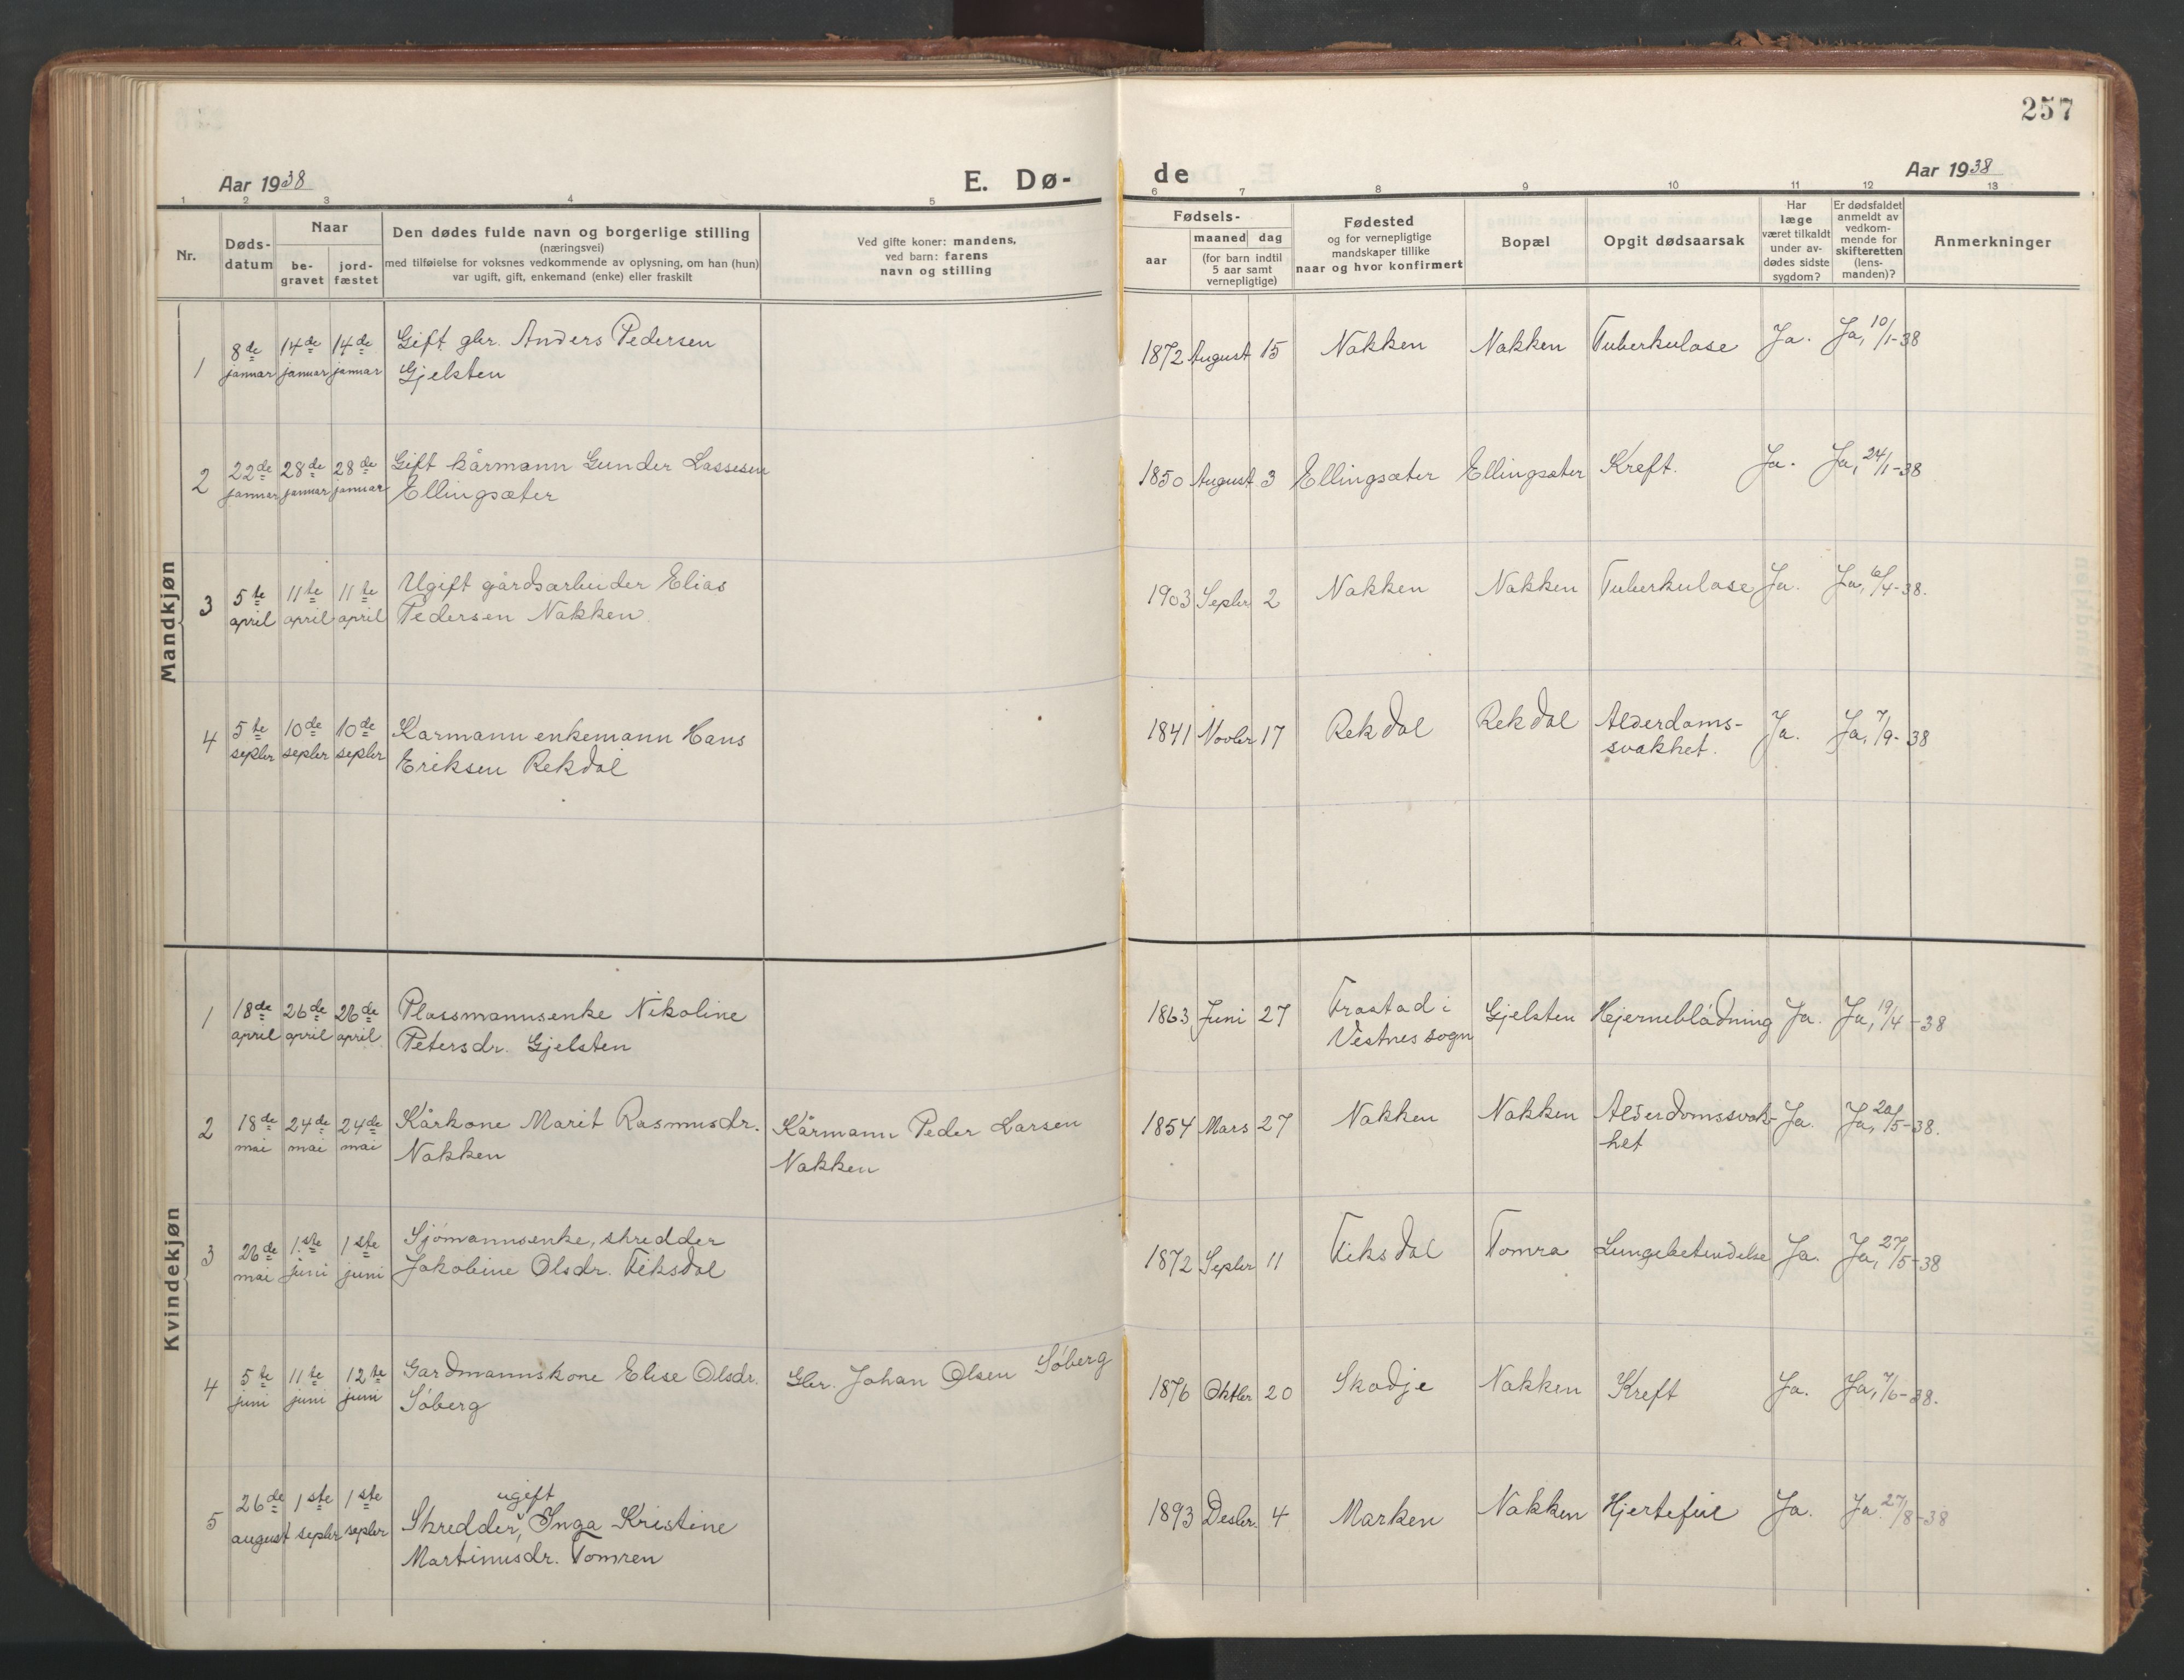 257
Aar 1938
E. Dø-
de
Aar 1938
1 2 3 4 5 6 7 8 9 10 11 12 13
Nr.
Døds-
datum
Naar
be-
gravet
jord-
fæstet
Den dødes fulde navn og borgerlige stilling
(næringsvei)
med tilføielse for voksnes vedkommende av oplysning, om han (hun)
var ugift, gift, enkemand (enke) eller fraskilt
Ved gifte koner: mandens,
ved barn: farens
navn og stilling
Fødsels-
aar
maaned dag
(for barn indtil
5 aar samt
vernepligtige)
Fødested
og for vernepligtige
mandskaper tillike
naar og hvor konfirmert
Bopæl
Opgit dødsaarsak
Har
læge
været tilkaldt
under av-
dødes sidste
sygdom?
Er dødsfaldet
anmeldt av
vedkom-
mende for
skifteretten
(lens-
manden)?
Anmerkninger
Mandkjøn
1 8de januar 14de januar 14de januar Gift gbr. Anders Pedersen
Gjelsten
1872 August 15 Nakken Nakken Tuberkulose Ja. Ja, 10/1-38
2 22de januar 28de januar 28de januar Gift kårmann Gunder Lassesen
Ellingsæter
1850 August 3 Ellingsæter Ellingsæter Kreft. Ja. Ja, 24/1-38
3 5te april 11te april 11te april Ugift gårdsarbeider Elias
Pedersen Nakken.
1903 Septbr 2 Nakken Nakken Tuberkulose Ja. Ja, 6/4-38.
4 5te septbr 10de septbr 10de septbr Karmann enkemann Hans
Eriksen Rekdal
1841 Novbr 17 Rekdal Rekdal Alderdoms-
svakhet. Ja. Ja, 7/9-38
Kvindekjøn
1 18de april 26de april 26de april Plassmannsenke Nikoline
Petersdr. Gjelsten
1863 Juni 27 Frostad i
Vestnes sogn Gjelsten Hjerneblødning Ja. Ja, 19/4-38
2 18de mai 24de mai 24de mai Kårkone Marit Rasmusdr.
Nakken
Kårmann Peder Larsen
Nakken
1854 Mars 27 Nakken Nakken Alderdomssvak-
het Ja. Ja, 20/5-38.
3 26de mai 1ste juni 1ste juni Sjømannsenke, skredder
Jakobine Olsdr. Fiksdal
1872 Septbr 11 Fiksdal Tomra Lungebetendelse Ja. Ja, 27/5-38
4 5te juni 11te juni 12te juni Gardmannskone Elise Olsdr.
Søberg
Gbr. Johan Olsen Søberg
1876 Oktbr 20 Skodje Nakken Kreft Ja. Ja, 7/6-38.
5 26de august 1ste septbr 1ste septbr
ugift
Skredder, Inga Kristine
Martinusdr. Tomren
1893 Desbr. 4 Marken Nakken Hjertefeil Ja. Ja 27/8-38